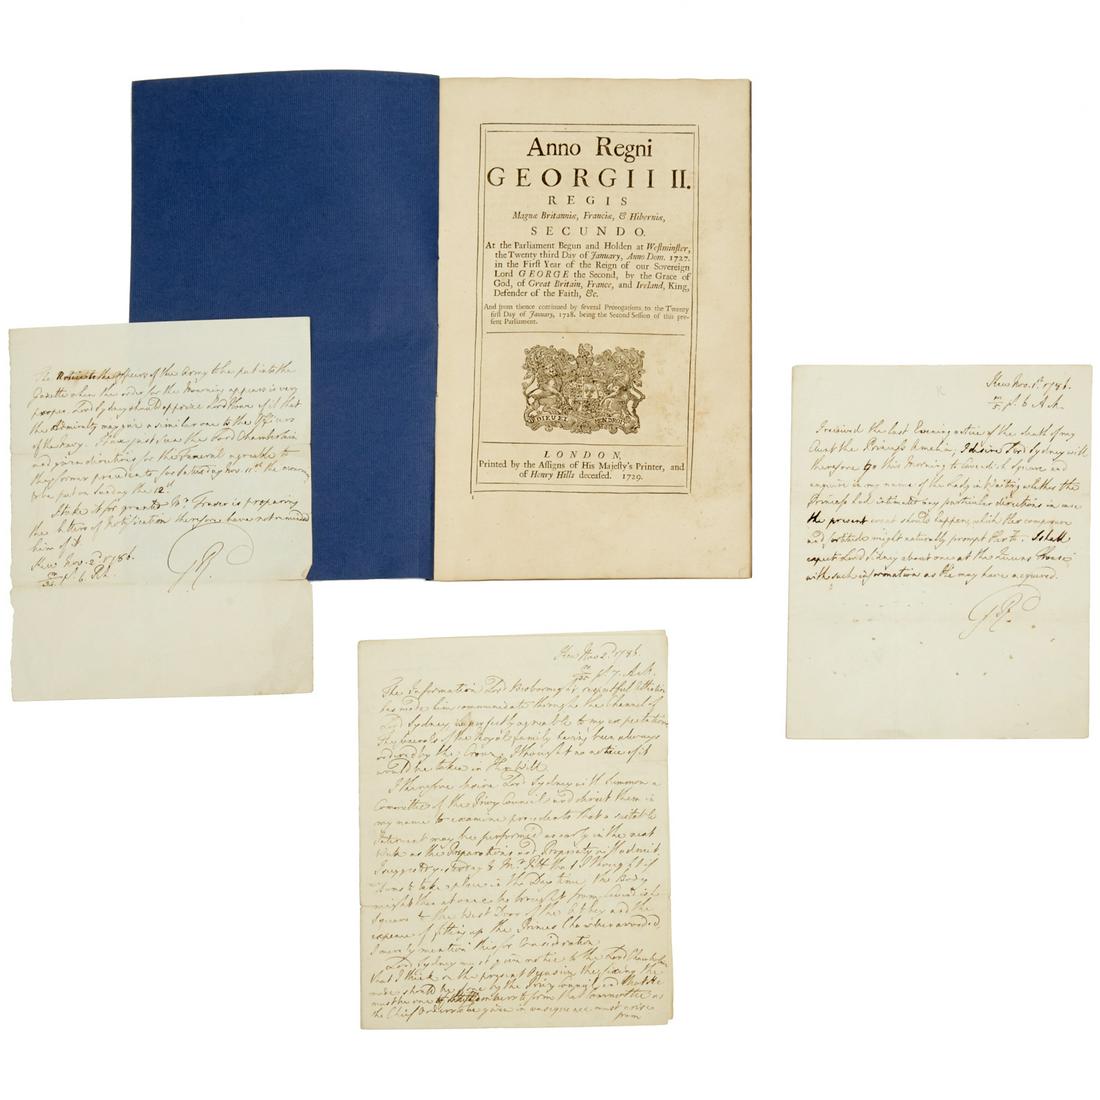 Anno Regni
GEORGII II.
REGIS
Magnæ Britanniæ, Franciæ, & Hiberniæ,
SECUNDO.
At the Parliament Begun and Holden at Westminster,
the Twenty third Day of January, Anno Dom. 1727.
in the First Year of the Reign of our Sovereign
Lord GEORGE the Second, by the Grace of
God, of Great Britain, France, and Ireland, King,
Defender of the Faith, &c.
And from thence continued by several Prorogations to the Twenty
first Day of January, 1728. being the Second Session of this pre-
sent Parliament.
DIEU ET MON DROIT
LONDON,
Printed by the Assigns of His Majesty's Printer, and
of Henry Hills deceased. 1729.
The Notice to the Officers of the Army to be put into the
Gazette when the order for the Mourning appears is very
proper Lord Sydney should apprize Lord Howe of it that
the Admiralty may give a similar one to the Officers
of the Navy. I have just seen the Lord Chamberlain
and given directions for the Funeral agreable to
the former precedents for Saturday Nov. 11th the mourning
to be put on Sunday the 12th
I take it for granted Mr. Fraser is preparing
the letters of Notification therefore have not reminded
him of it
Kew Nov. 2d 1786.
m/35 pt. 6 P.M.
GR
Kew Nov. 1st 1786.
m/5 pt. 6 A.M.
I received the last Evening notice of the death of my
Aunt the Princess Amelia, I desire Lord Sydney will
therefore go this Morning to Cavendish Square and
enquire in my name of the Lady in Waiting whether the
Princess had intimated any particular directions in case
the present event should happen, which Her composure
and fortitude might naturally prompt Her to. I shall
expect Lord Sydney about one at the Queens House
with such information as He may have acquired.
GR
Kew Nov. 2d. 1786.
m/35 pt. 7 A.M.
The Information Lord Besborough's respectful Attention
has made him communicate through the Channel of
Ld Sydney is perfectly agreable to my expectation
the funerals of the Royal family having been always
ordered by the Crown, I thought no notice of it
would be taken in the Will.
I therefore desire Lord Sydney will summon a
Committee of the Privy Council and direct them in
my name to examine precedents that a suitable
Interment may be performed as early in the next
Week as the Preparations and Propriety will admit
I suggested yesterday to Mr. Pitt that I thought if
it was to take place in the Day time the Body
might then at once be brought from Cavendish
Square to the West Door of the Abbey and the
expence of fitting up the Princes Chamber avoided,
I merely mention this for consideration
Lord Sydney must give notice to the Lord Chamberlain
that I think on the present Occasion the fixing the
more should be done by the Privy Council and that He
must be one of the Members to form the Committee as
the Chief Orders to be given in consequence must arise
from